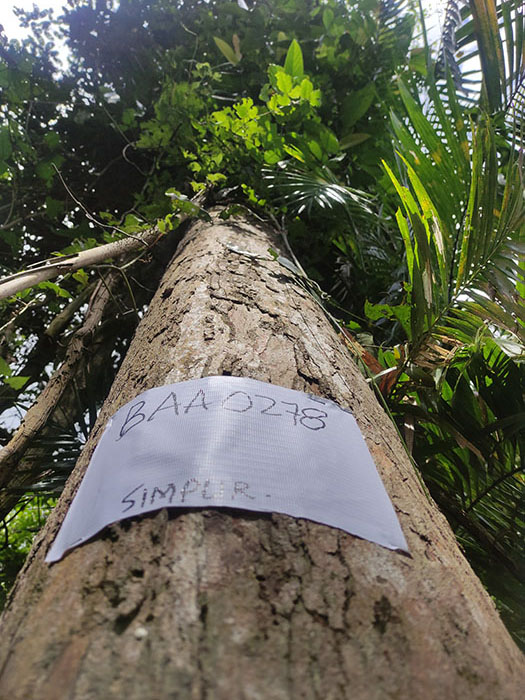 BAA 0278
SIMPUR.